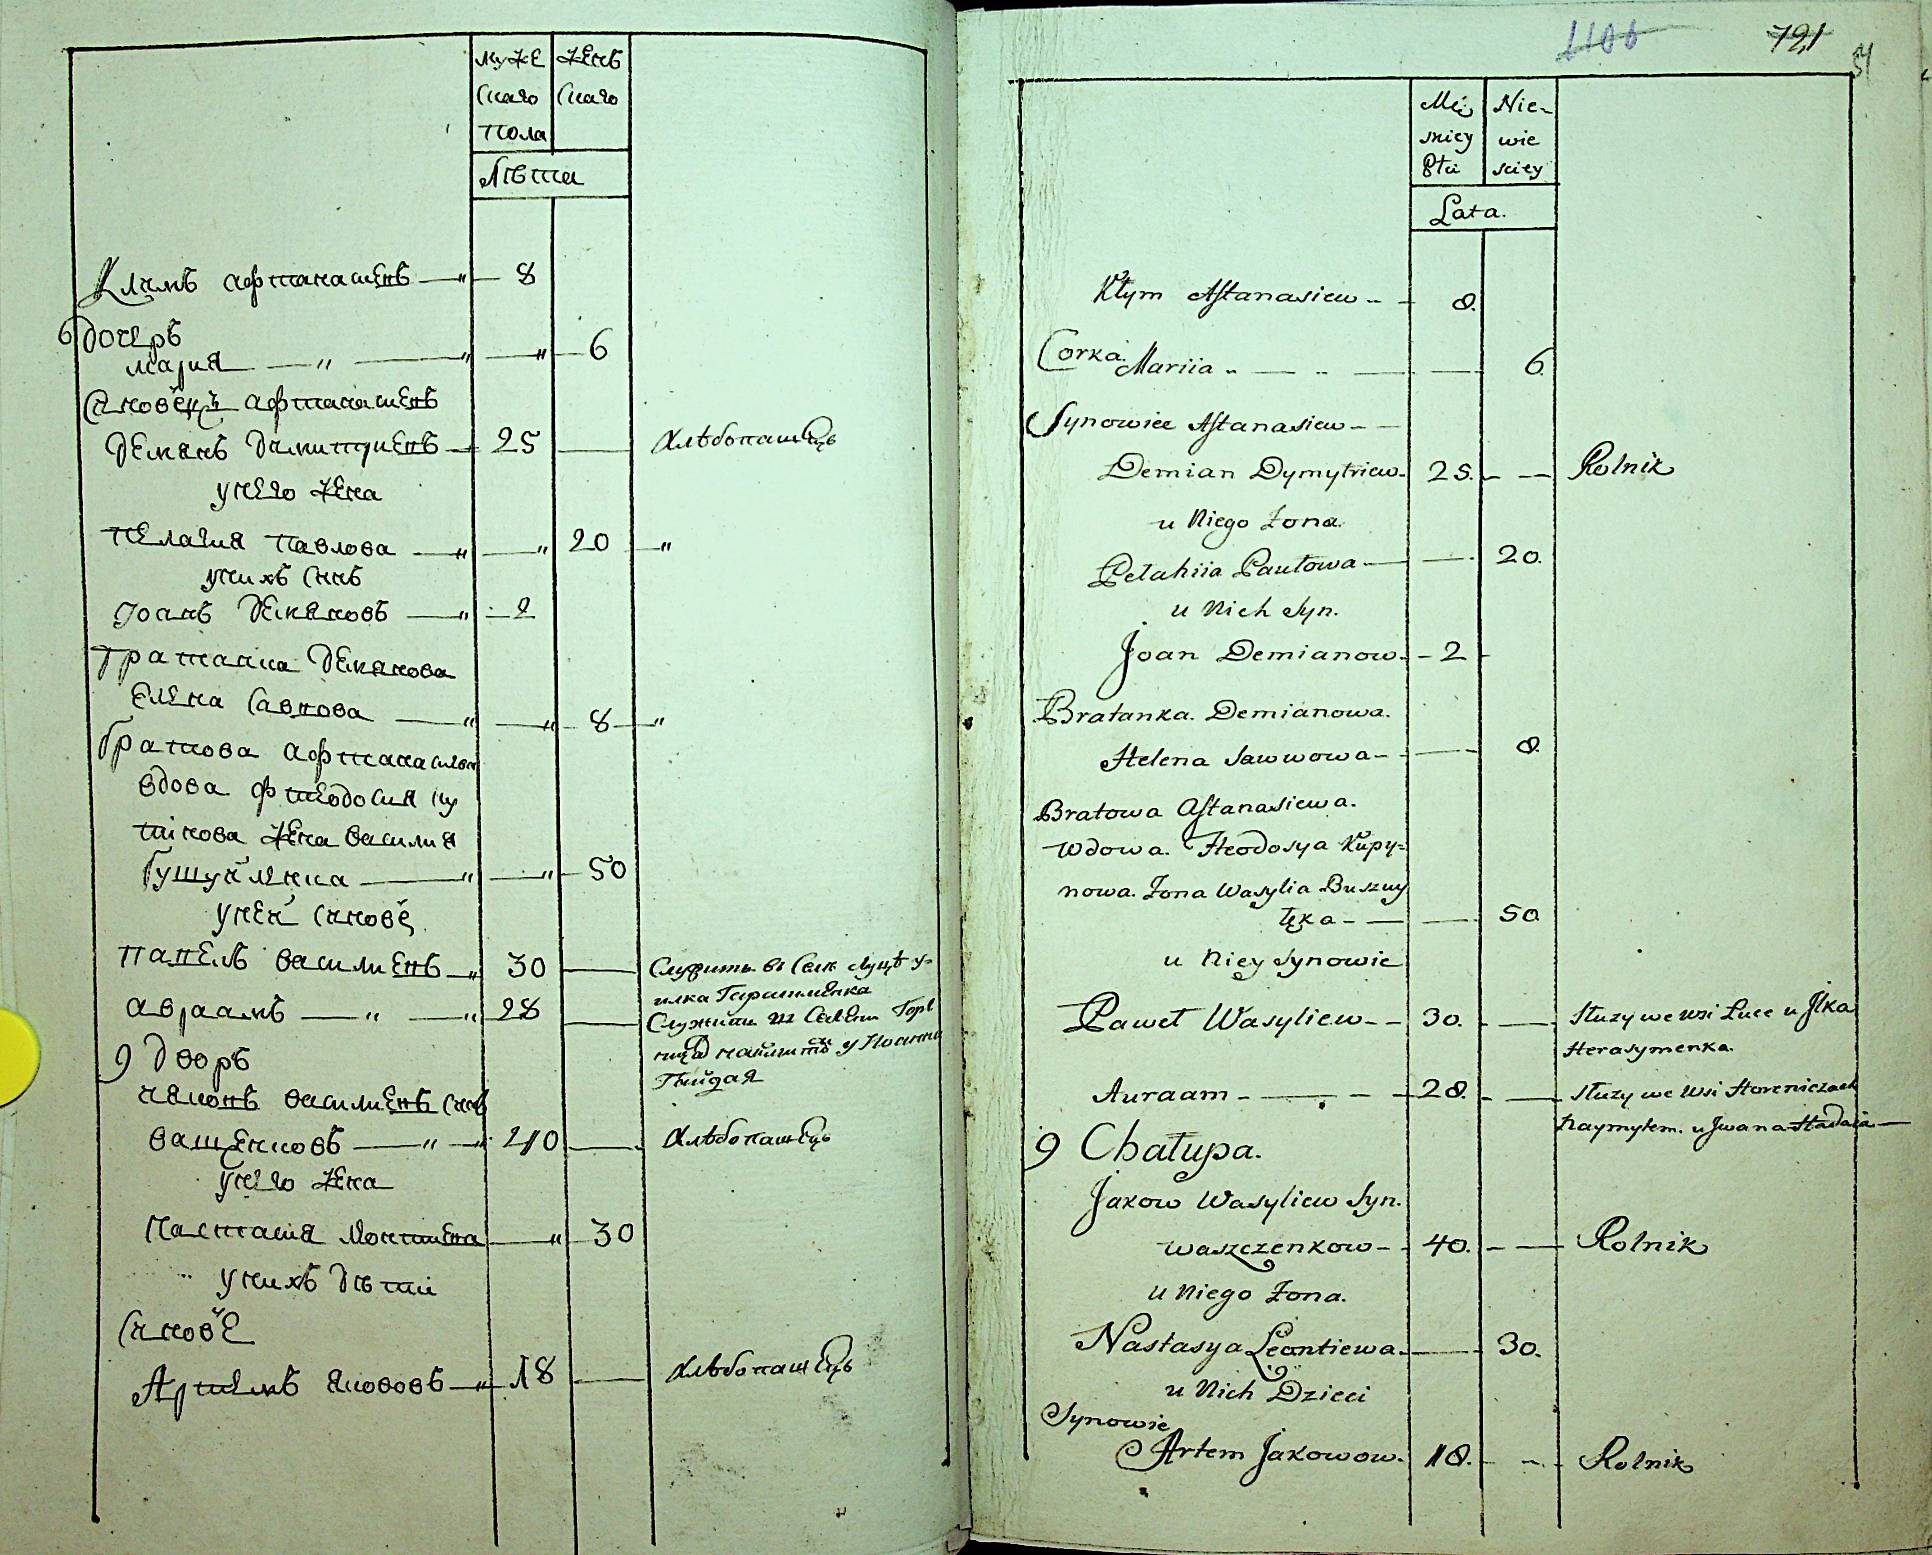 муже женъ
скаго скаго
пола
лѣта
Климъ афтанасіевъ — " — 8
дочеръ
мария — " — " — " — 6
Сыновецъ афтанасіевъ
Демянъ Димитриевъ — 25 — Хлѣбопашецъ
у него жена
пелагия павлова — " — " 20 — "
у нихъ сынъ
Іоанъ Демяновъ — " — 2
братанка Демянова
Елена Савнова — " — " — 8 — "
братова афтанасиева
вдова фтеодосия ку
пинова жена василия
бушуйленка — " — " — 50
у ней синове
павелъ василиевъ — " 30 — Служитъ въ селѣ Луцѣ у
илка Герасименка
авраамъ — " — " 28 — Служитъ въ селѣ Горе
9 дворъ
яковъ василиевъ синъ
ващенковъ — " — " 40 — Хлѣбопашецъ
у него жена
Настасия Леонтиева — " — 30
у нихъ дѣти
Синове
Артемъ яковов — " 18 — Хлѣбопашецъ
1106 721
51
Męz Nie-
skiey wie
Płci sciey
Lata.
Kłym Aftanasiew - - 8.
Corka
Mariia " — " — — 6.
Synowiec Aftanasiew - —
Demian Dymytriew - 25. - — Rolnik
u Niego Zona.
Pelahiia Pawłowa — — 20.
u Nich Syn.
Joan Demianow. - 2 -
Bratanka. Demianowa.
Helena Sawwowa - - — 8.
Bratowa Aftanasiewa.
Wdowa. Fteodosya Kupy=
nowa. Zona Wasylia Buszuy
lęka - — — 50
u Niey Synowie
Paweł Wasyliew - - 30. - — Słuzy we wsi Łuce u Jlka
Herasymenka.
Auraam - — - - 28. - — Słuzy we wsi Horeniczach
Naymytem. u Jwana Hadaia —
9 Chałupa.
Jakow Wasyliew Syn.
Waszczenkow - - 40. - — Rolnik
u Niego Zona.
Nastasya Leontiewa. — 30.
u Nich Dzieci
Synowie
Artem Jakowow. 18. - - - Rolnik